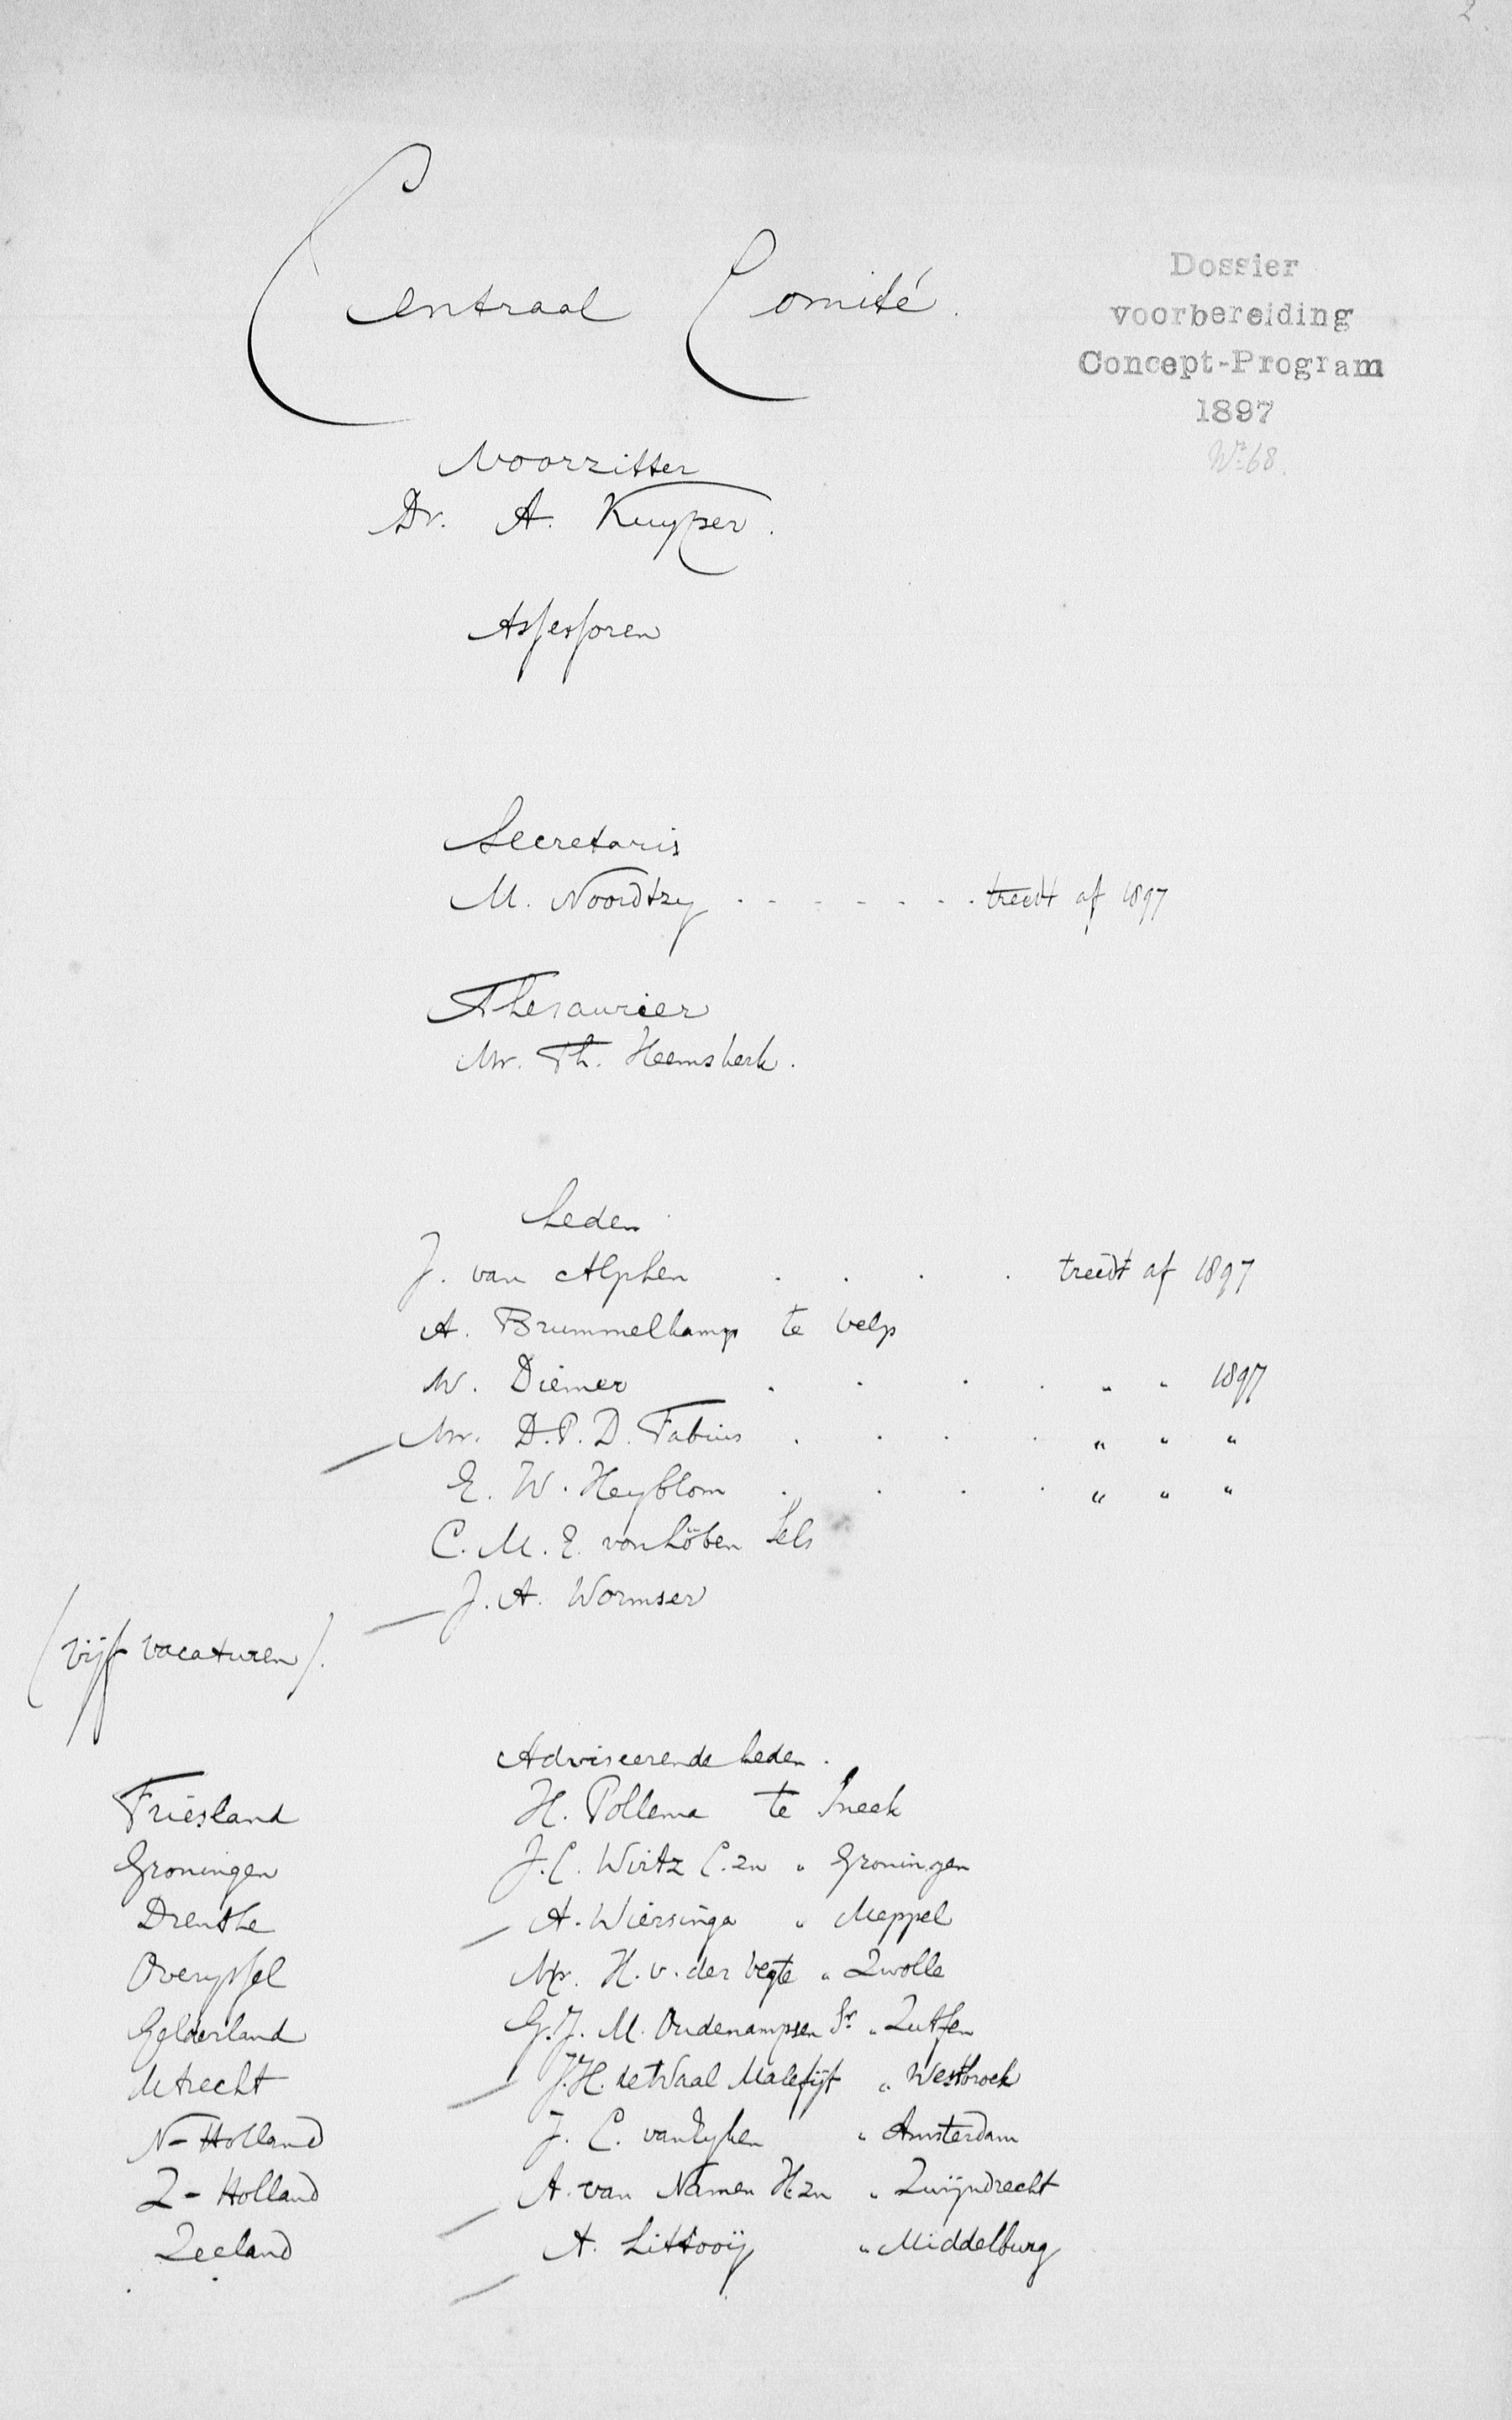 2
Centraal Comité.
Dossier
voorbereiding
Concept-Program
1897
No 68.
Voorzitter
Dr. A. Kuyper.
Assessoren
Secretaris
M. Noordtzy . . . . . . . treedt af 1897
Thesaurier
Mr. Th. Heemskerk.
Leden
J. van Alphen . . . . treedt af 1897
A. Brummelkamp te Velp
W. Diemer . . . . „ „ 1897
Mr. D.P.D. Fabius . . . . „ „ „
E. W. Heyblom . . . . „ „ „
C. M. E. van Löben Sels
J. A. Wormser
(vijf vacaturen).
Adviseerende Leden.
Friesland H. Pollema te Sneek
Groningen J.C. Wirtz C.zn „ Groningen
Drenthe A. Wiersinga „ Meppel
Overyssel Mr. H. v. der Vegte „ Zwolle
Gelderland G.J. M. Oudenampsen Sr. „ Zutfen
Utrecht J.H. de Waal Malefijt „ Westbroek
N-Holland J. C. van Eyken „ Amsterdam
Z-Holland A. van Namen Hzn „ Zwijndrecht
Zeeland A. Littooij „ Middelburg